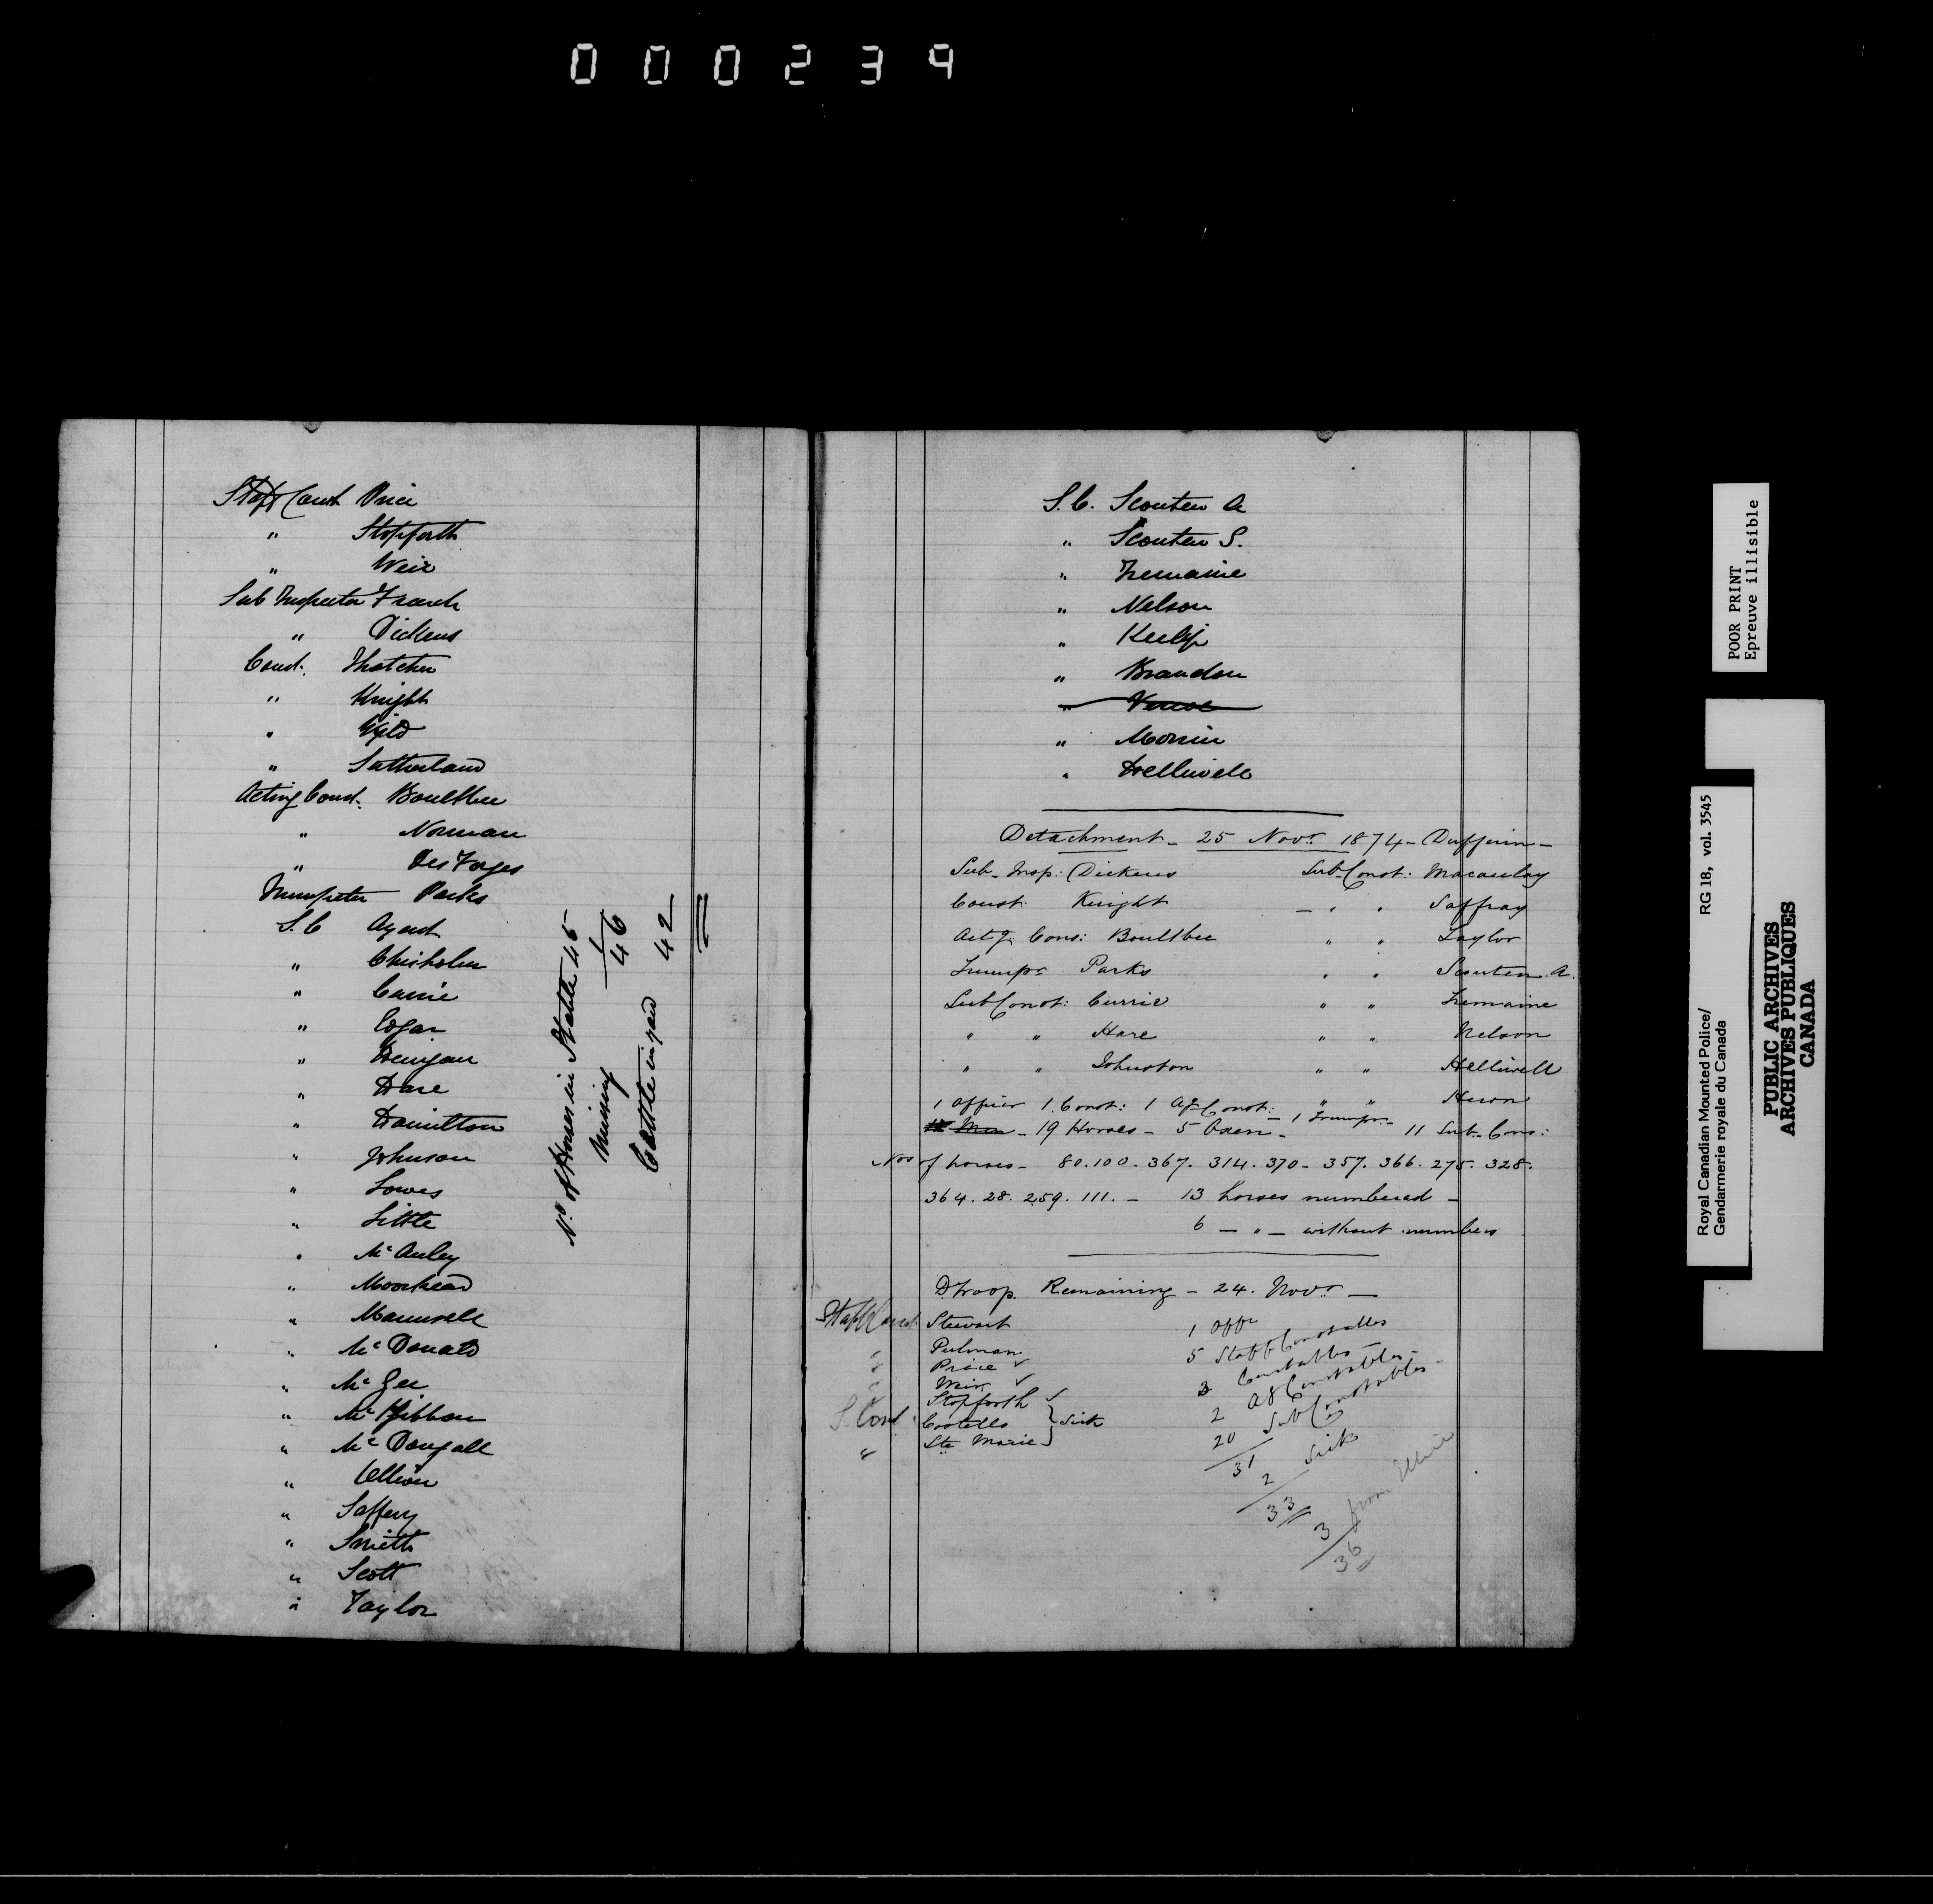 000239
Staff Const Price
" Stopforth
" Weir
Sub Inspector French
" Dickens
Const. Thatcher
" Knight
" Wild
" Sutherland
Acting Const. Boultbee
" Norman
" Des Forges
Trumpeter Parks
S.C Agent
" Chisholm
" Currie
" Edgar
" Hare
" Hamilton
" Johnson
" Lowes
" Little
" McAuley
" Moorhead
" Maunsell
" McDonald
" McGee
" McKibbon
" McDougall
" Saffery
" Smith
" Scott
" Taylor
No of Horses in Stable 45
Missing 1
46
Cattle in yard 42
S.C. Scouten A
" Scouten S.
" Tremaine
" Nelson
" Brandon
" Morrin
" Helliwell
Detachment - 25 Novr 1874 - Dufferin -
Sub-Insp: Dickens Sub-Const: Macaulay
Const: Knight - " " Saffray
Actg. Cons: Boultbee " " Taylor
Trumpr Parks " " Scouten. A.
Sub Const: Currie " " Tremaine
" " Hare " " Nelson
" " Johnston " " Helliwell
" " Heron
1 Officer 1 Const: 1 Ag Const: - 1 Trumpr. -
Men - 19 Horses - 5 Oxen - 11 Sub-Cons:
Nos of horses - 80. 100. 367. 314. 370 - 357. 366. 275. 328.
364. 28. 259. 111. - 13 horses numbered -
6 - " - without numbers
D troop Remaining - 24. Novr -
Staff Const. Stewart 1 Offr
" Pulman 5 Staff Constables
" Price ✓ 3 Constables -
" Weir ✓ 2 Ag Constables -
Stopforth ✓ 20 Sub Constables -
S. Const. Costello } Sick 31
" Ste Marie 2 Sick
33
3 from Ellice
36
POOR PRINT
Epreuve illisible
Royal Canadian Mounted Police/ RG 18, vol. 3545
Gendarmerie royale du Canada
PUBLIC ARCHIVES
ARCHIVES PUBLIQUES
CANADA